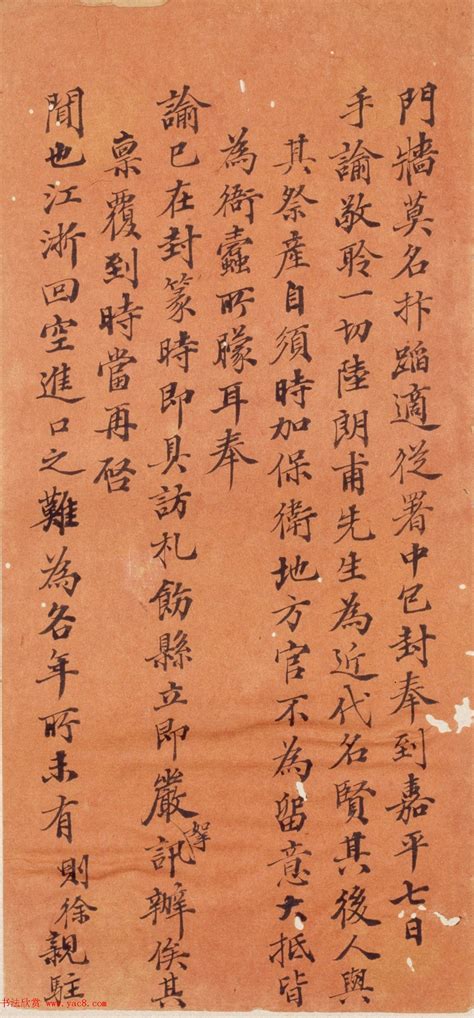 門牆莫名抃蹈適從署中包封奉到嘉平七日
手諭敬聆一切陸朗甫先生為近代名賢其後人與
其祭產自須時加保衛地方官不為留意大抵皆
為衙蠹所矇耳奉
諭已在封篆時即具訪札飭縣立即嚴訊辦俟其
稟覆到時當再啓
聞也江浙回空進口之難為各年所未有則徐親駐
书法欣赏 www.yac8.com